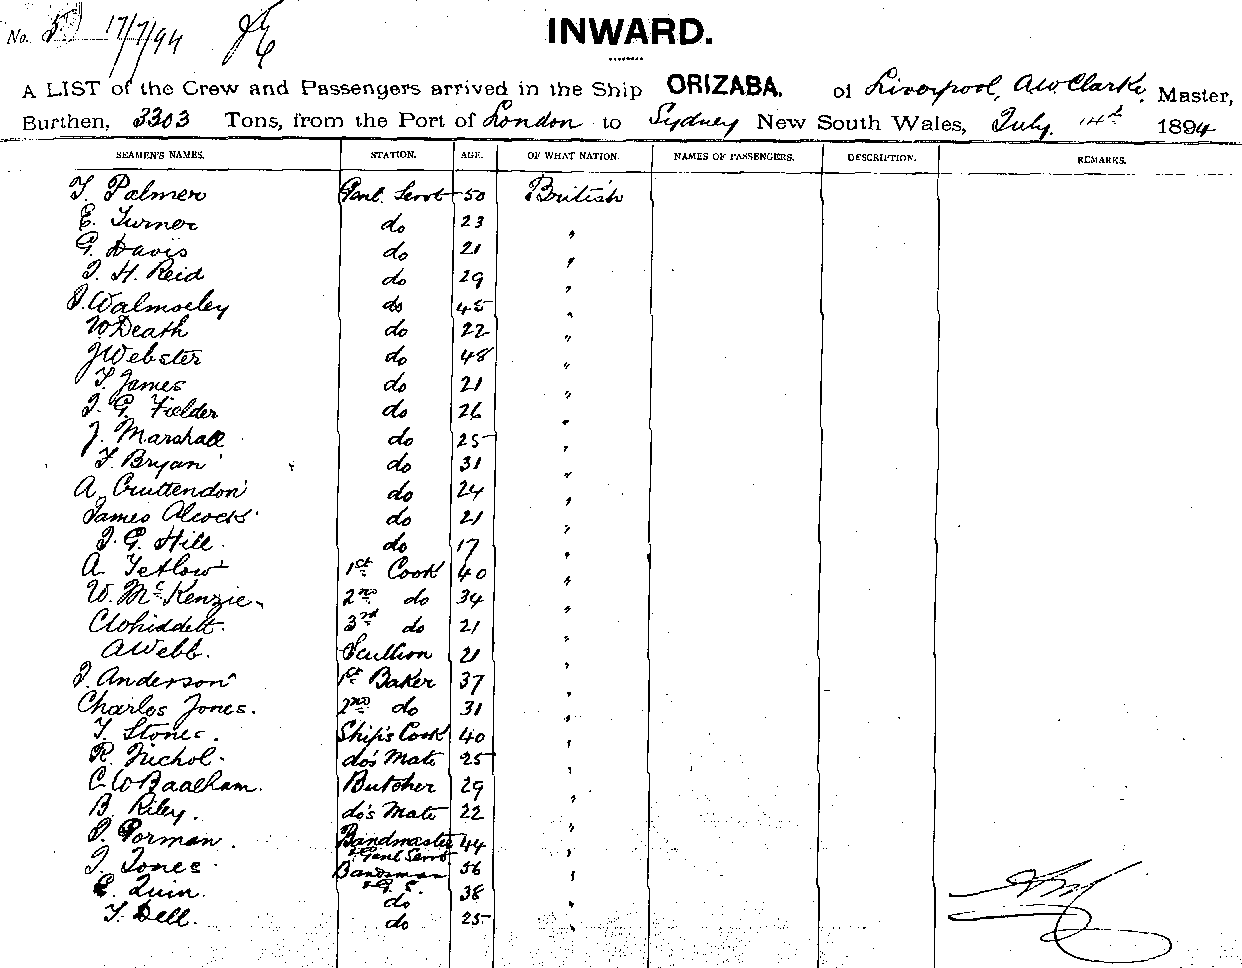 No. 5 17/7/94
INWARD.
A LIST of the Crew and Passengers arrived in the Ship ORIZABA. of Liverpool, A W Clarke, Master,
Burthen, 3303 Tons, from the Port of London to Sydney New South Wales, July 14th 1894
SEAMEN'S NAMES. STATION. AGE. OF WHAT NATION. NAMES OF PASSENGERS. DESCRIPTION. REMARKS.
T. Palmer Genl. Servt 50 British
E. Turner do 23 "
G. Davis do 21 "
J. H. Reid do 29 "
J. Walmseley do 45 "
W Death do 22 "
J Webster do 48 "
T. James do 21 "
J. G. Fielder do 26 "
J. Marshall do 25 "
T. Bryan do 31 "
A. Cruttendon do 24 "
James Alcock do 21 "
J. G. Hill. do 17 "
A Tetlow 1st Cook 40 "
W. McKenzie 2nd do 34 "
C Whiddett. 3rd do 21 "
A Webb. Scullion 21 "
J. Anderson 1st Baker 37 "
Charles Jones. 2nd do 31 "
T. Stones. Ship's Cook 40 "
R. Nichol. do's Mate 25 "
C. W Baalham. Butcher 29 "
B. Riley. do's Mate 22 "
P. Porman. Bandmaster 44 "
& Genl Servt
J. Jones Bandsman 36 "
& G. S.
E. Quin. do 38 "
T. Dell. do 25 "